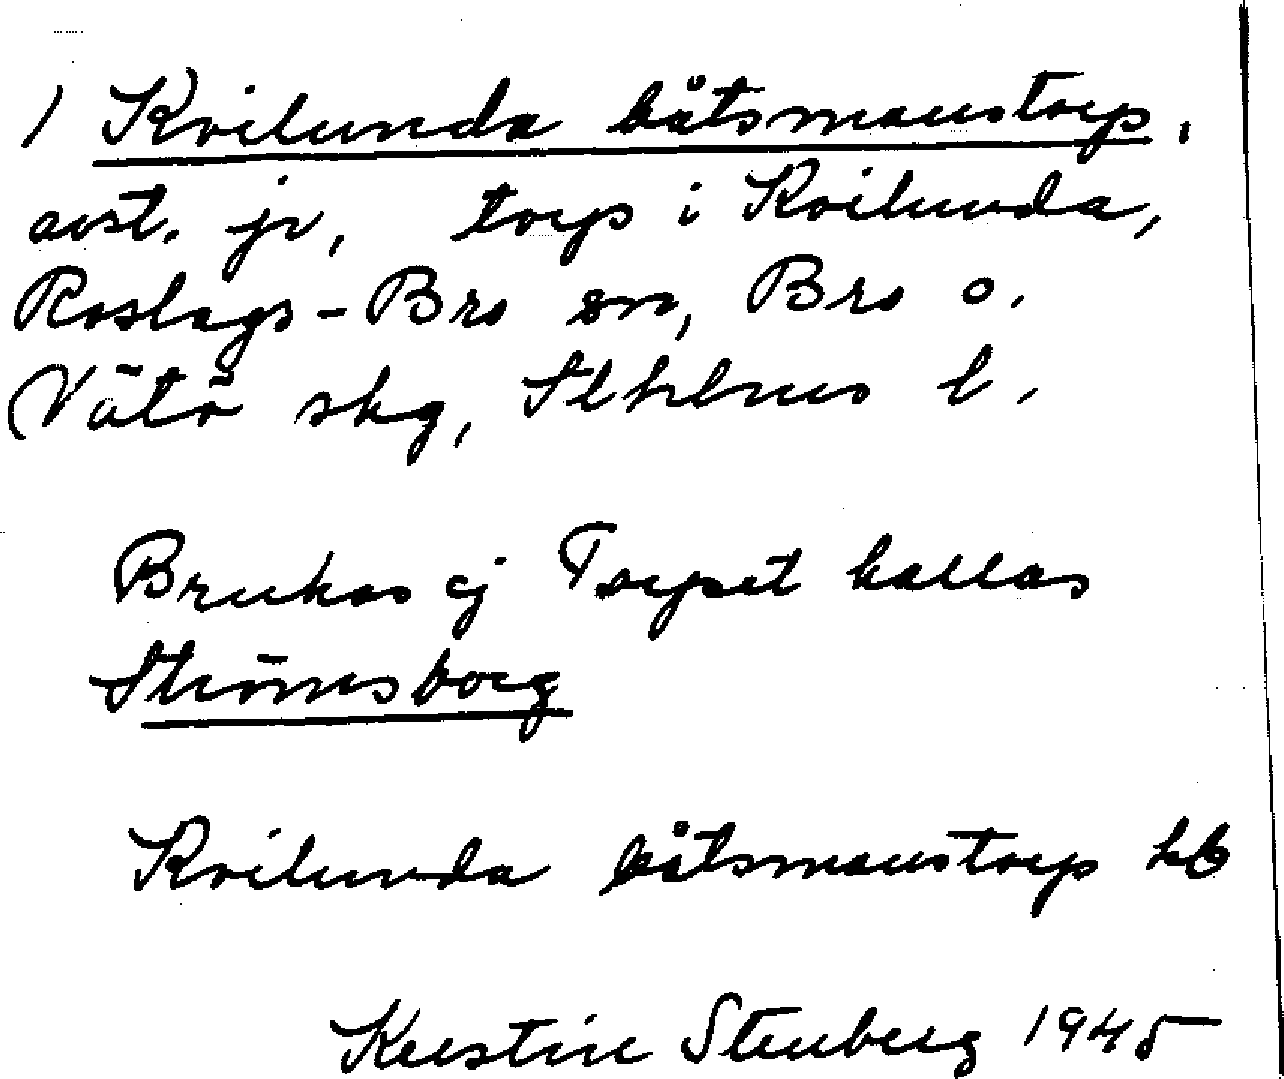 1 Kvilunda båtsmanstorp,
avst. jr, torp i Kvilunda,
Roslags-Bro sn, Bro o.
Vätö skg, Sthlms l.
Brukas ej Torpet kallas
Strömsborg
Kvilunda båtsmanstorp hb
Kerstin Stenberg 1945